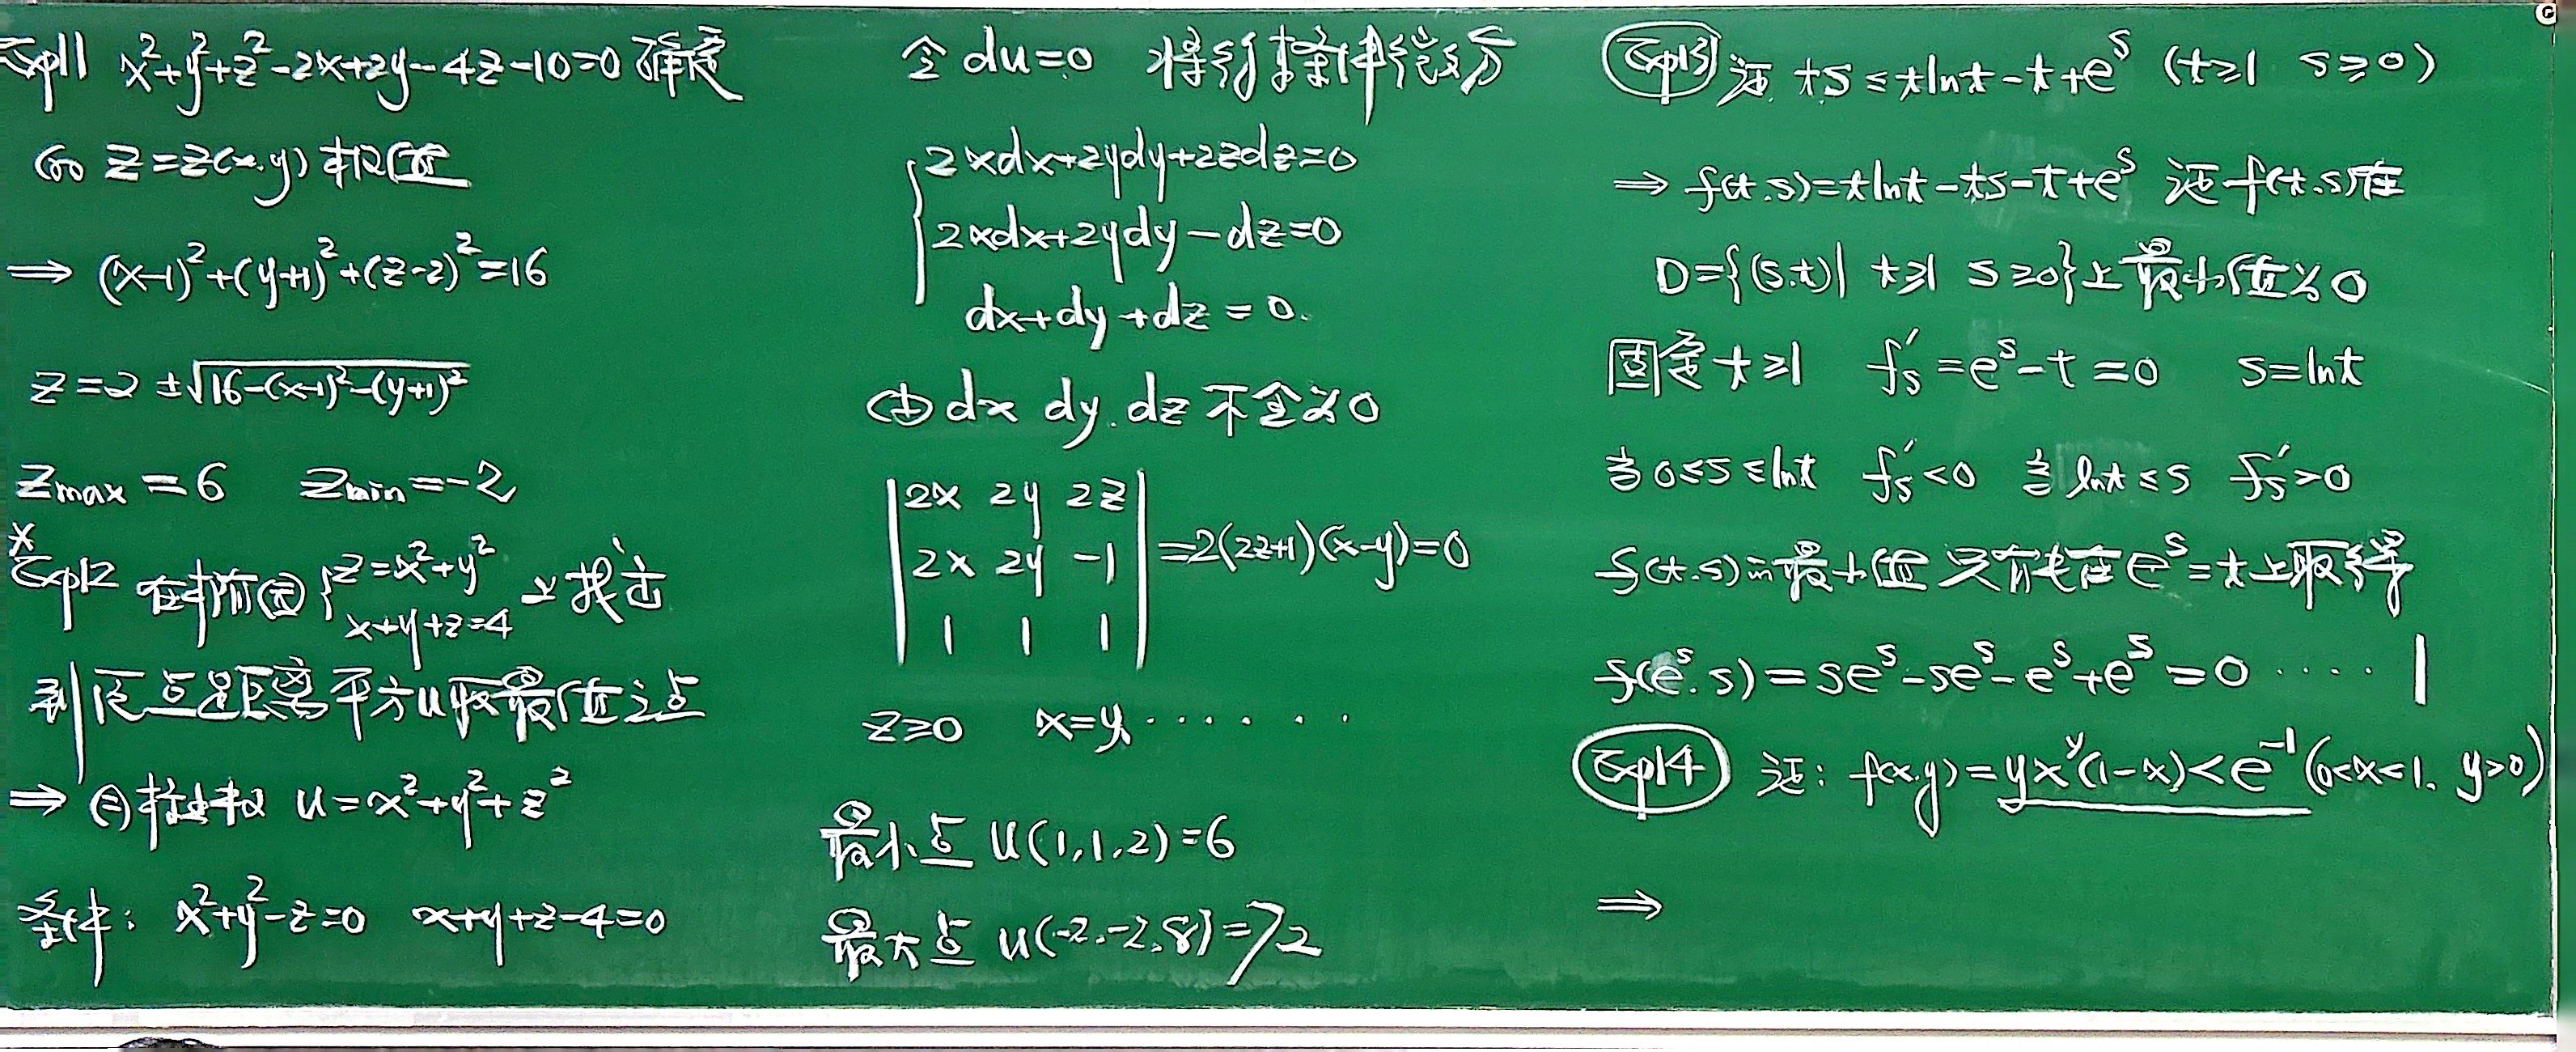 Exp11 x²+y²+z²-2x+2y-4z-10=0 确定
的 z=z(x,y) 极值
⇒ (x-1)²+(y+1)²+(z-2)²=16
z=2±√(16-(x-1)²-(y+1)²)
Zmax=6 Zmin=-2
x
Exp12 在椭圆 { z=x²+y² x+y+z=4 上找出
到原点距离平方u取最值之点
⇒ 目标 u=x²+y²+z²
条件: x²+y²-z=0 x+y+z-4=0
令 du=0 将条件微分
{ 2xdx+2ydy+2zdz=0
2xdx+2ydy-dz=0
dx+dy+dz=0.
由 dx dy.dz 不全为0
| 2x 2y 2z |
| 2x 2y -1 | =2(2z+1)(x-y)=0
| 1 1 1 |
z≥0 x=y ······
最小点 u(1,1,2)=6
最大点 u(-2,-2,8)=72
Exp13 证 ts≤tlnt-t+eˢ (t≥1 s≥0)
⇒ f(t.s)=tlnt-ts-t+eˢ 证 f(t.s)在
D={(s.t)| t≥1 s≥0}上最小值为0
固定 t≥1 f's=eˢ-t=0 s=lnt
当 0≤s≤lnt f's<0 当 lnt≤s f's>0
f(t.s)的最小值只有在eˢ=t上取得
f(eˢ.s)=seˢ-seˢ-eˢ+eˢ=0 ···· |
Exp14 证: f(x.y)=yxʸ(1-x)<e⁻¹ (0<x<1, y>0)
⇒